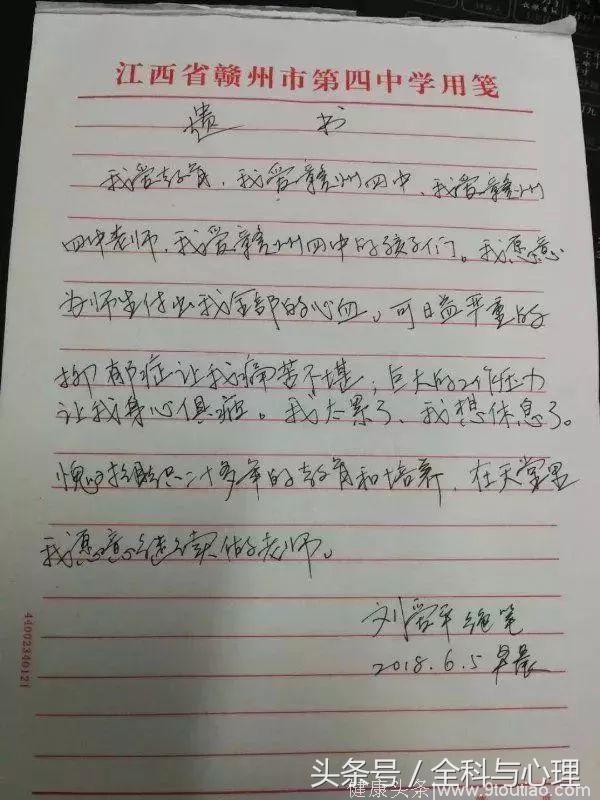 江西省赣州市第四中学用笺
遗 书
我爱教育，我爱赣州四中，我爱赣州
四中老师，我爱赣州四中的孩子们。我愿意
为师生付出我全部的心血。可日益严重的
抑郁症让我痛苦不堪；巨大的工作压力
让我身心俱疲。我太累了，我想休息了。
愧对组织二十多年的教育和培养，在天堂里
我愿意继续做老师。
刘爱平绝笔
2018.6.5 早晨
44002340121
头条号 / 全科与心理
健康头条 www.9fouliao.com